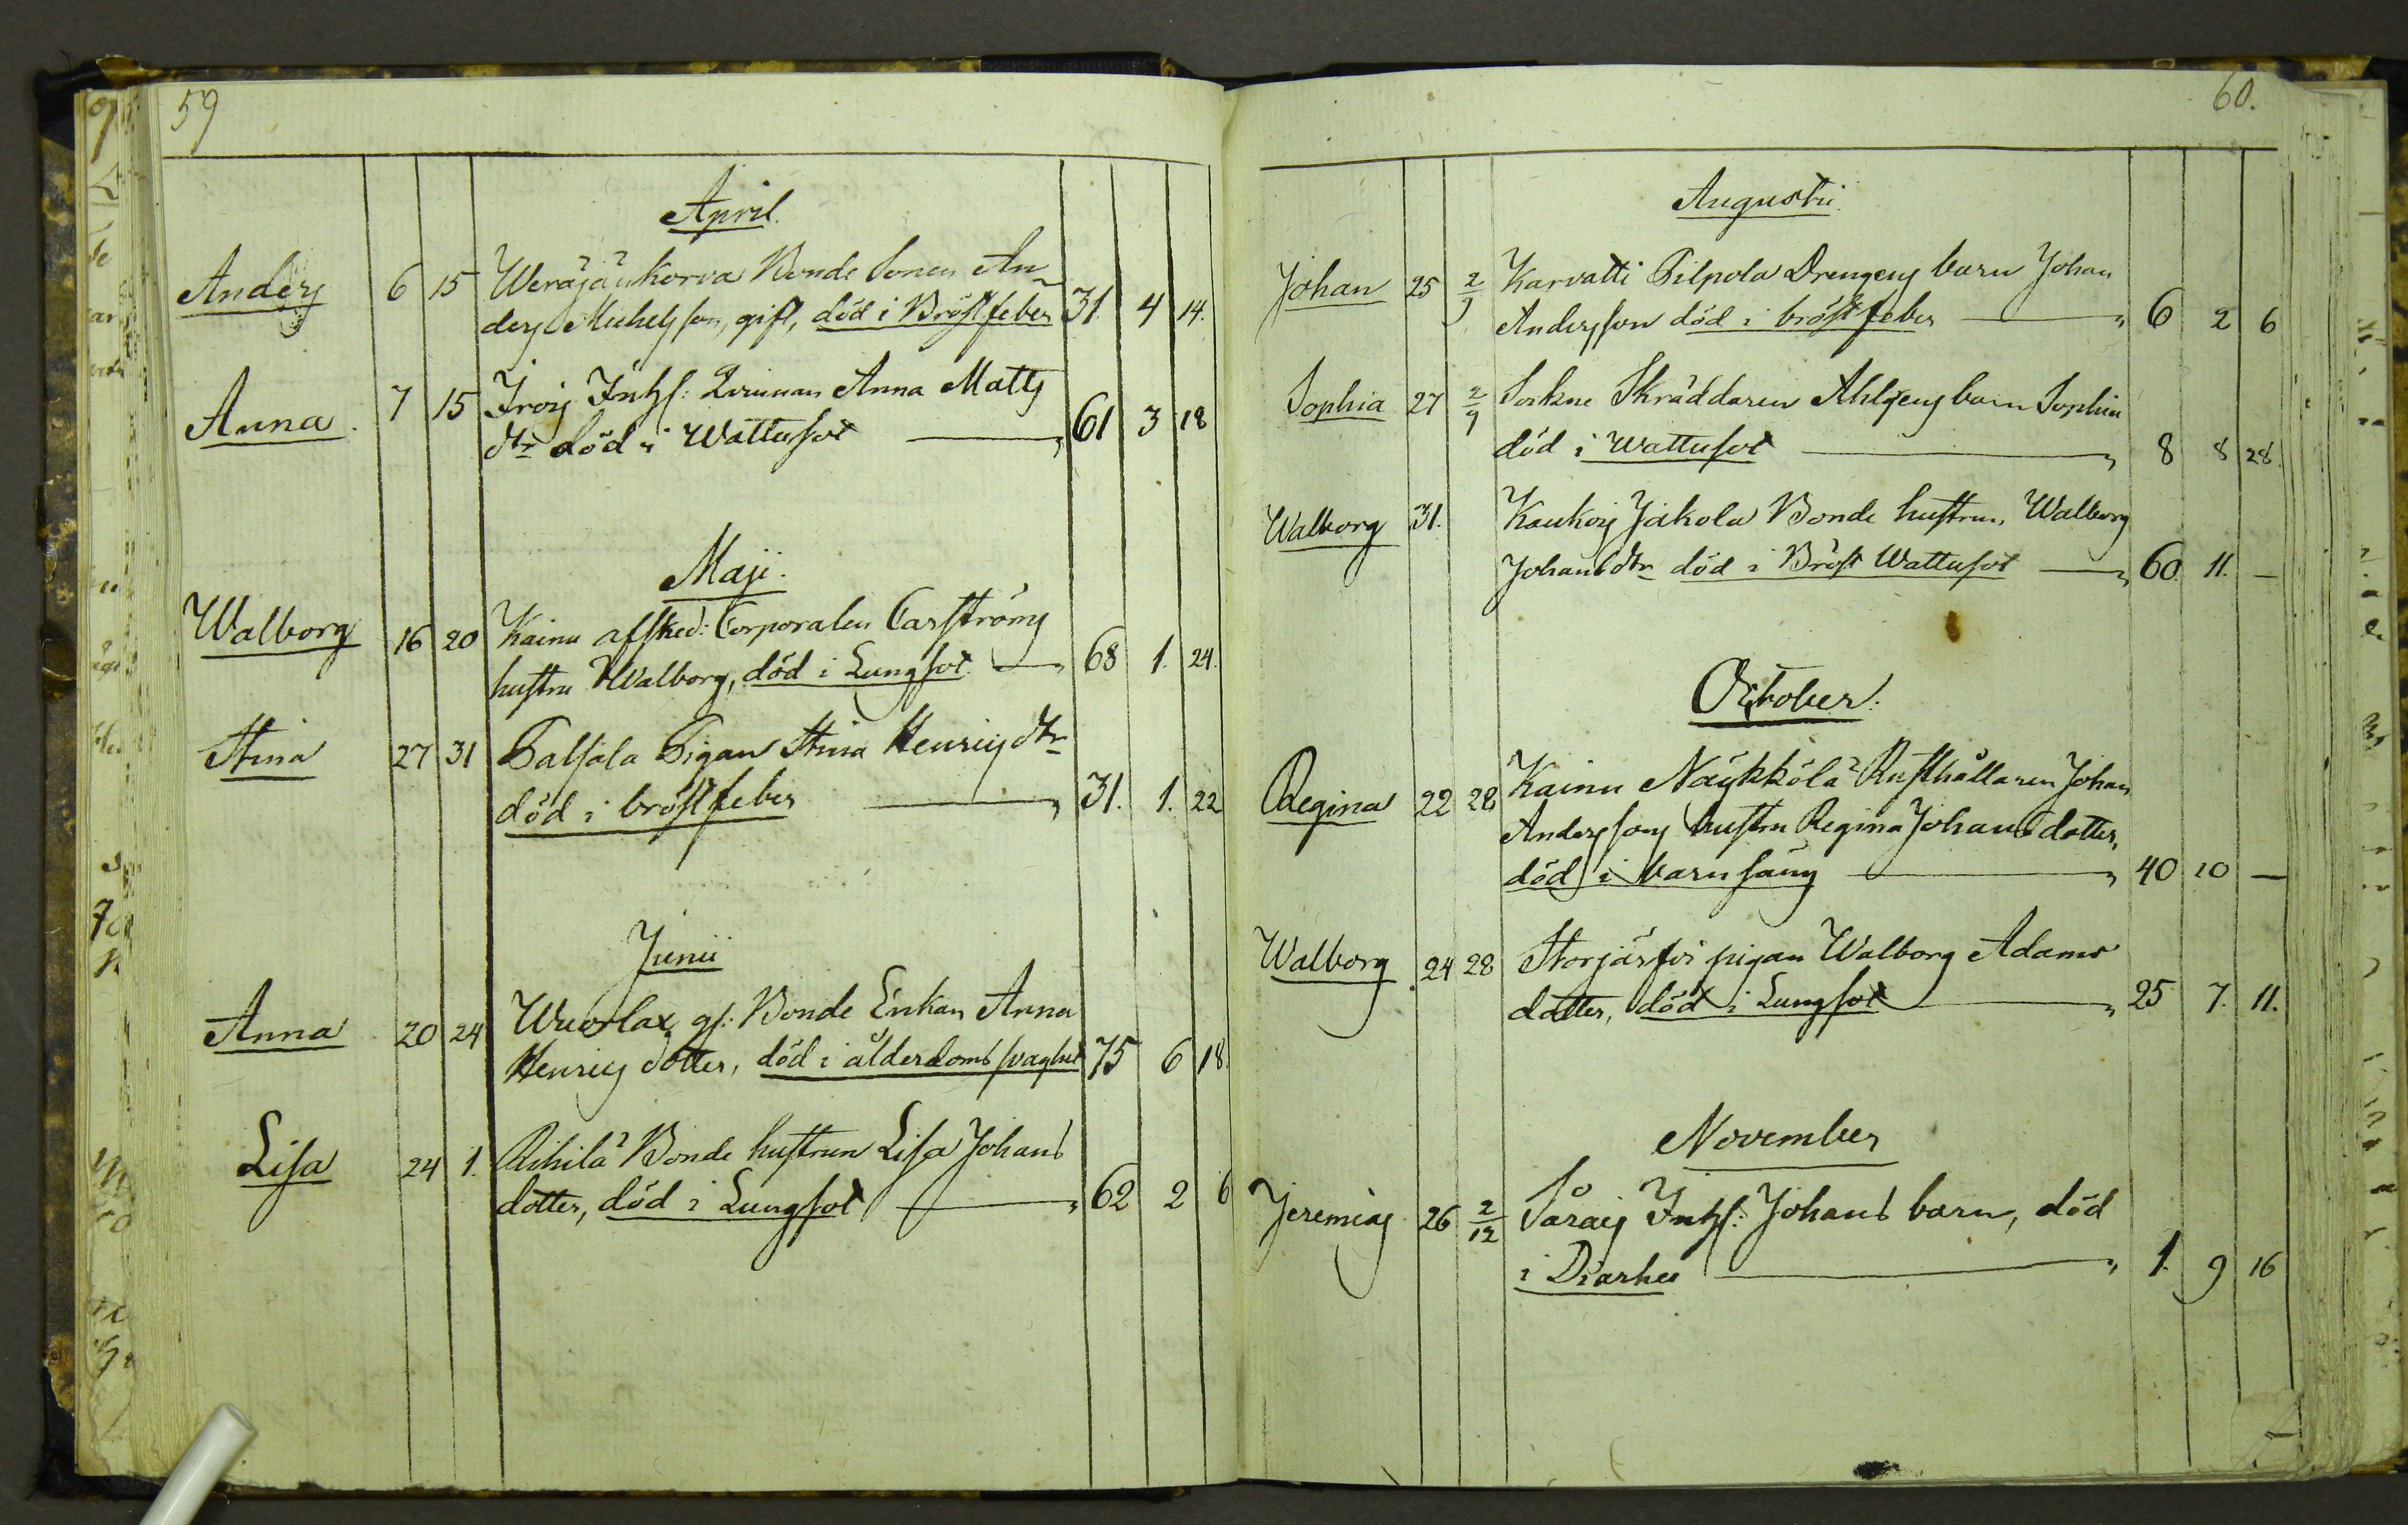 59
April.
Anders 6 15 Weräjänkorva Bonde Sonen An
ders Michelsson, gift, död i Bröstfeber 31. 4 14.
Anna. 7 15 Irois Inhs: Anna Matts
dtr död i Wattusot 61 3 18
Maji.
Walborg 16 20 Kainu afsked: Corporalen Carströms
hustru Walborg, död i Lungsot 68 1. 24.
Stina 27 31 Palsala Pigan Stina Henrics dtr
död i bröstfeber 31. 1. 22
Junii
Anna 20 24 gl: Bonde Enkan Anna
Henrics dotter, död i ålderdoms svaghet 75 6 18.
Lisa 24 1. Rihilä Bonde hustrun Lisa Johans
dotter, död i Lungsot 62 2 6
60.
Augusti.
Johan 25 2/9 Karvatti Pilpola Drengens barn Johan
Andersson död i bröstfeber 6 2 6
Sophia 27 2/9 Sockne Skräddaren Ahlgens barn Sophia
död i Wattusot 8 8 28.
Walborg 31. Kaukois Jakola Bonde hustrun, Walborg
Johans dtr död i Bröst Wattusot 60. 11. —
October.
Regina 22 28 Kainu Näykkölä Rusthållaren Johan
Anderssons hustru Regina Johans dotter,
död i barnsäng 40 10 —
Walborg 24 28 Storjärfvi pigan Walborg Adams
dotter, död i Lungsot 25 7. 11.
November
Jeremias 26 2/12 Inhs: Johans barn, död
i Diarhee 1. 9 16